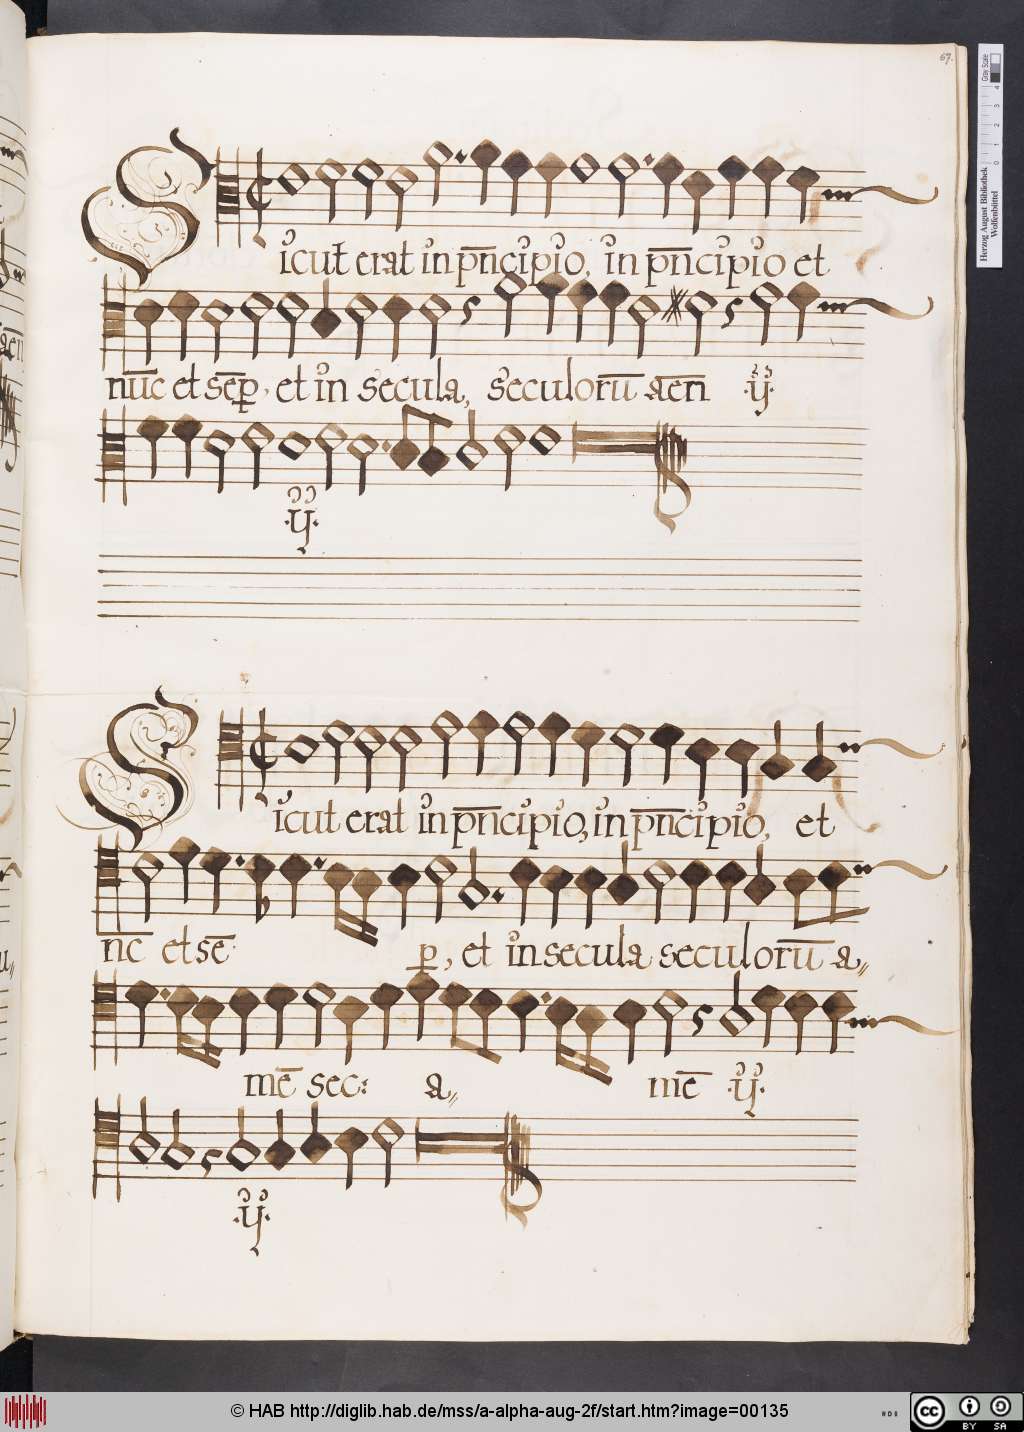 67.
Sicut erat in pn̄cipio, in pn̄cipio et
nūc et sēp, et in secula, seculorū aēn ij
ij
Sicut erat in pn̄cipio, in pn̄cipio, et
nc̄ et sē p, et in secula seculorū a„
mē sec: a„ mē ·ij·
·ij·
Herzog August Bibliothek
Wolfenbüttel
Gray Scale
0 1 2 3 4
© HAB http://diglib.hab.de/mss/a-alpha-aug-2f/start.htm?image=00135
cc BY SA